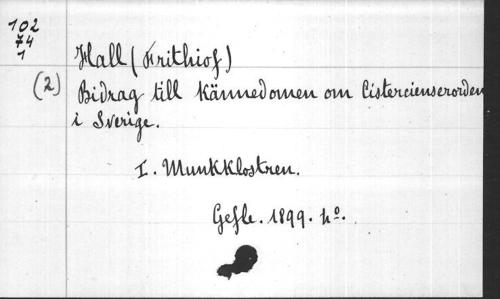 102
74
1
Hall (Frithiof)
(2) Bidrag till kännedomen om Cistercienserorden
i Sverige.
I. Munkklostren.
Gefle. 1899. 4º.